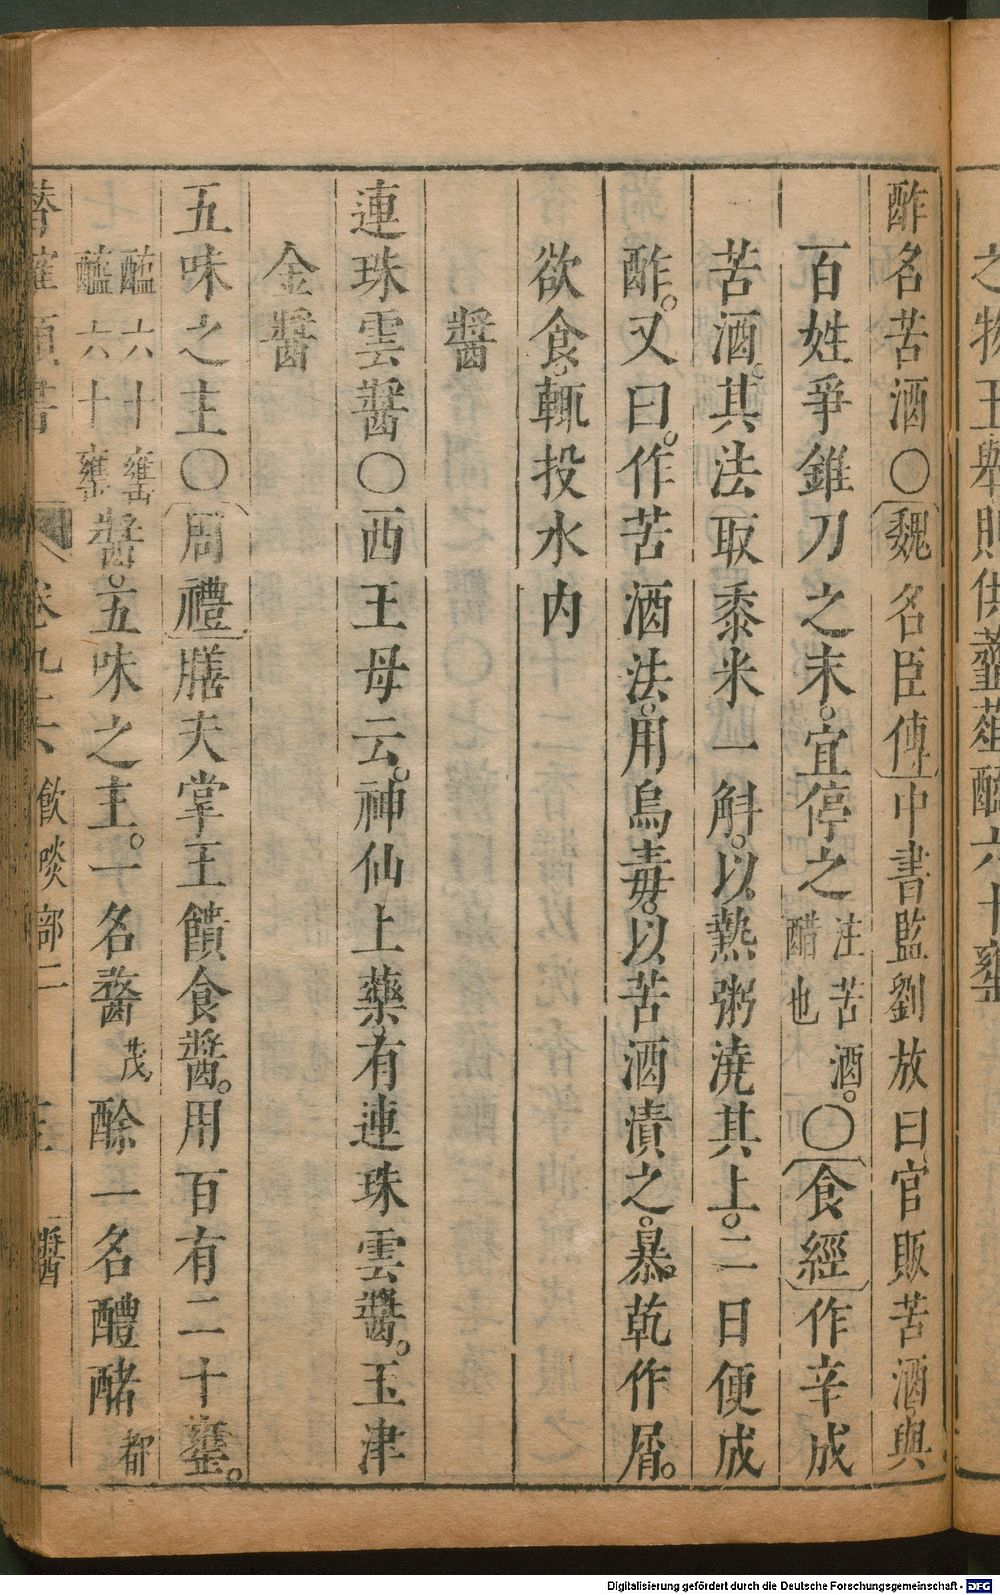 之物王舉則供虀葅醢六十罋
酢名苦酒○魏名臣傳中書監劉放曰官販苦酒與
百姓爭錐刀之末。宜停之注苦酒。醋也○食經作辛成
苦酒。其法取黍米一斛。以熱粥澆其上。二日便成
酢。又曰。作苦酒法。用烏毒。以苦酒漬之。暴乾作屑。
欲食。輒投水內
醬
連珠雲醬○西王母云。神仙上藥有連珠雲醬。玉津
金醬
五味之主○周禮膳夫掌王饋食醬。用百有二十罋。
醢六十罋醯六十罋醬。五味之主。一名䜼茂酴一名醴䣝都
類書 卷九六 飲啖部二 醬
Digitalisierung gefördert durch die Deutsche Forschungsgemeinschaft - DFG